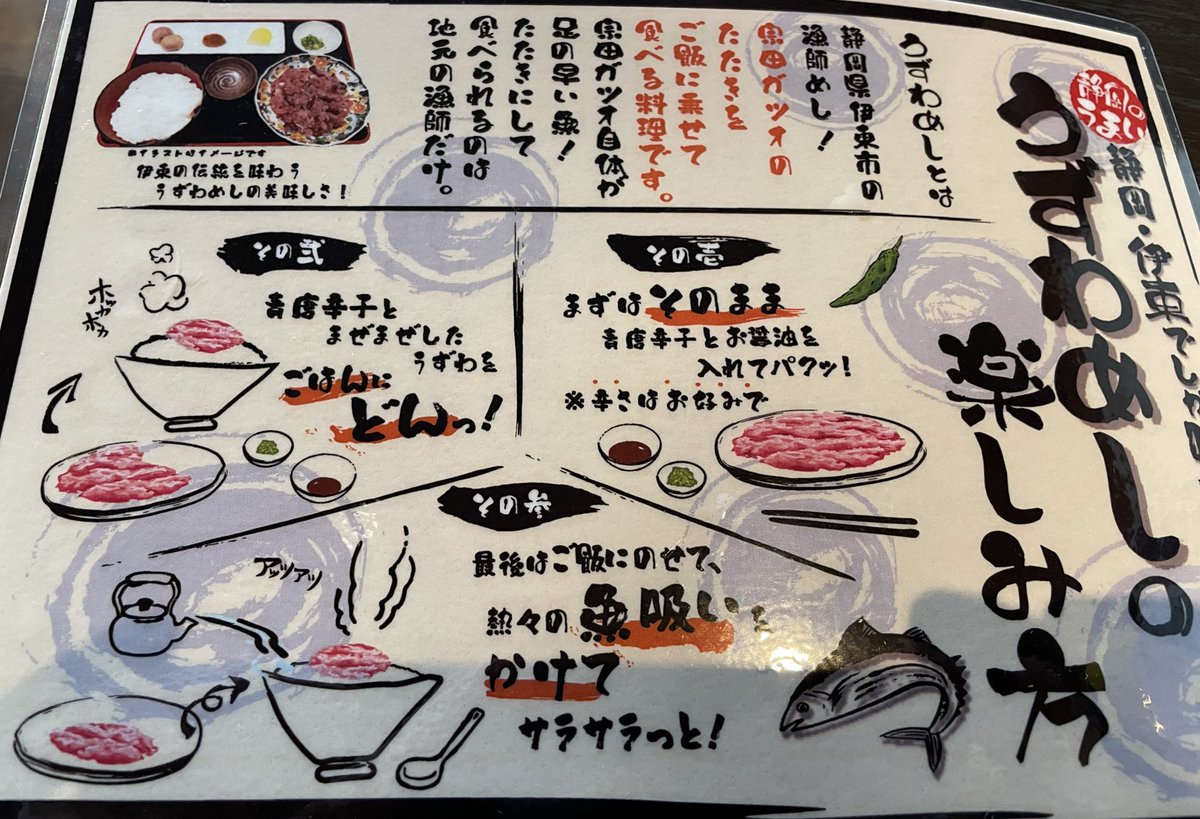 静岡の
うまい
静岡・伊東でしか
うずわめしの
楽しみ方
うずわめしとは
静岡県伊東市の
漁師めし！
宗田ガツオの
たたきを
ご飯に乗せて
食べる料理です。
宗田ガツオ自体が
足の早い魚！
たたきにして
食べられるのは
地元の漁師だけ。
※イラストはイメージです
伊東の伝統を味わう
うずわめしの美味しさ！
その壱
まずはそのまま
青唐辛子とお醤油を
入れてパクッ！
※辛さはお好みで
その弐
青唐辛子と
まぜまぜした
うずわを
ごはんに
どんっ！
ホッカホカ
その参
最後はご飯にのせて、
熱々の魚吸いを
かけて
サラサラっと！
アッツアッ